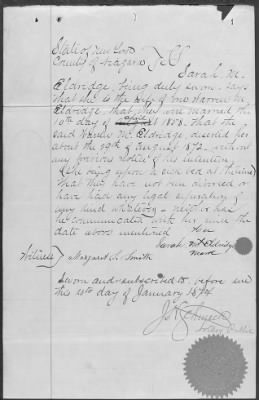 State of New York
County of Niagara } SS
Sarah M.
Eldredge, being duly sworn, says
that she is the wife of one
Eldredge, that they were married the
10th day of 1873. That the
said M. Eldredge, deserted her
about the 29th of August 1873. without
any previous notice of his intention.
(She being before in such
that they have not been divorced or
have had any legal separation of
any kind whatever – neither has
he communicated with her since the
date above mentioned her
Sarah M Eldridge
mark
Witness } Margaret A. Smith
Sworn and subscribed to, before me
this day of January 1874
J.
Notary Public